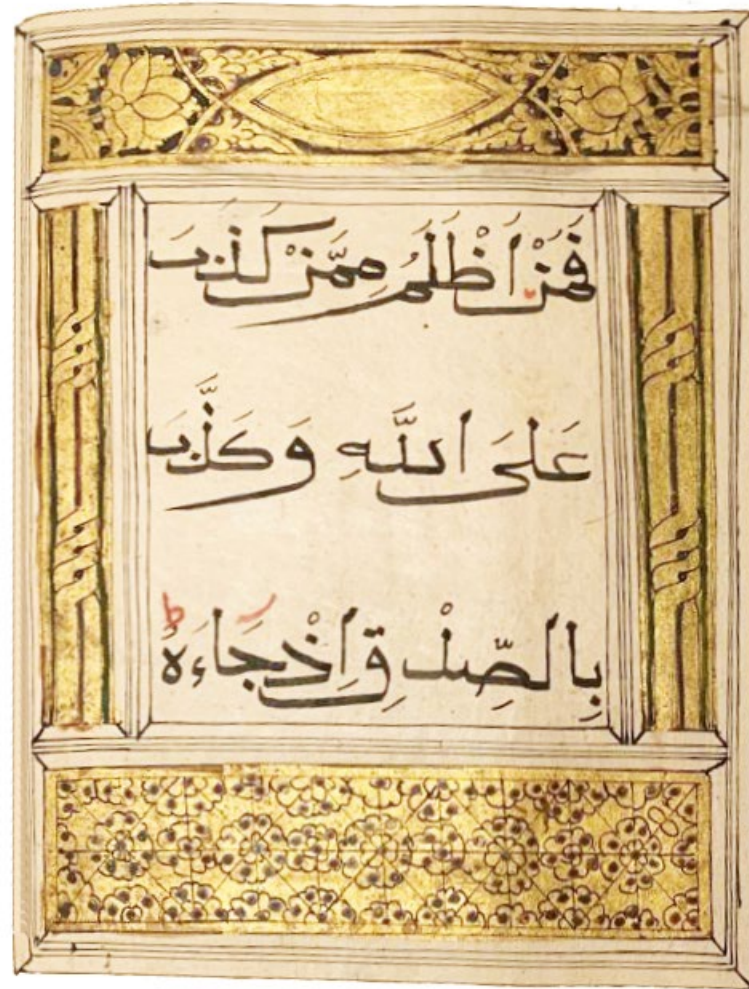 فَمَنْ اَظْلَمُ مِمَّنْ كَذَبَ
عَلَى اللَّهِ وَكَذَّبَ
بِالصِّدْقِ اِذْ جَاءَهُ ط